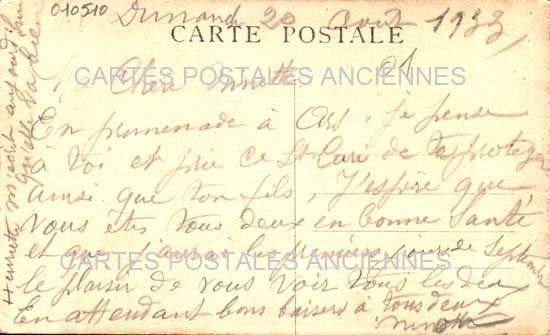 010510
20 Août 1933
CARTE POSTALE
01
CARTES POSTALES ANCIENNES
Chère
En promenade à Ars, je pense
à toi et prie ce St Curé de te protéger
ainsi que ton fils, J'espère que
vous êtes tous deux en bonne Santé
et que j'aurai les premiers jours de Septembre
CARTES POSTALES ANCIENNES
le plaisir de vous voir tous les deux
En attendant bons baisers à tous deux
Henriette m'écrit aujourd'hui